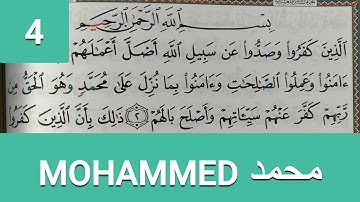 4
بِسْمِ اللَّهِ الرَّحْمَٰنِ الرَّحِيمِ
الَّذِينَ كَفَرُوا وَصَدُّوا عَن سَبِيلِ اللَّهِ أَضَلَّ أَعْمَٰلَهُمْ
ءَامَنُوا وَعَمِلُوا الصَّٰلِحَٰتِ وَءَامَنُوا بِمَا نُزِّلَ عَلَىٰ مُحَمَّدٍ وَهُوَ الْحَقُّ مِن
رَّبِّهِمْ كَفَّرَ عَنْهُمْ سَيِّـَٔاتِهِمْ وَأَصْلَحَ بَالَهُمْ ٢ ذَٰلِكَ بِأَنَّ الَّذِينَ كَفَرُوا
MOHAMMED محمد